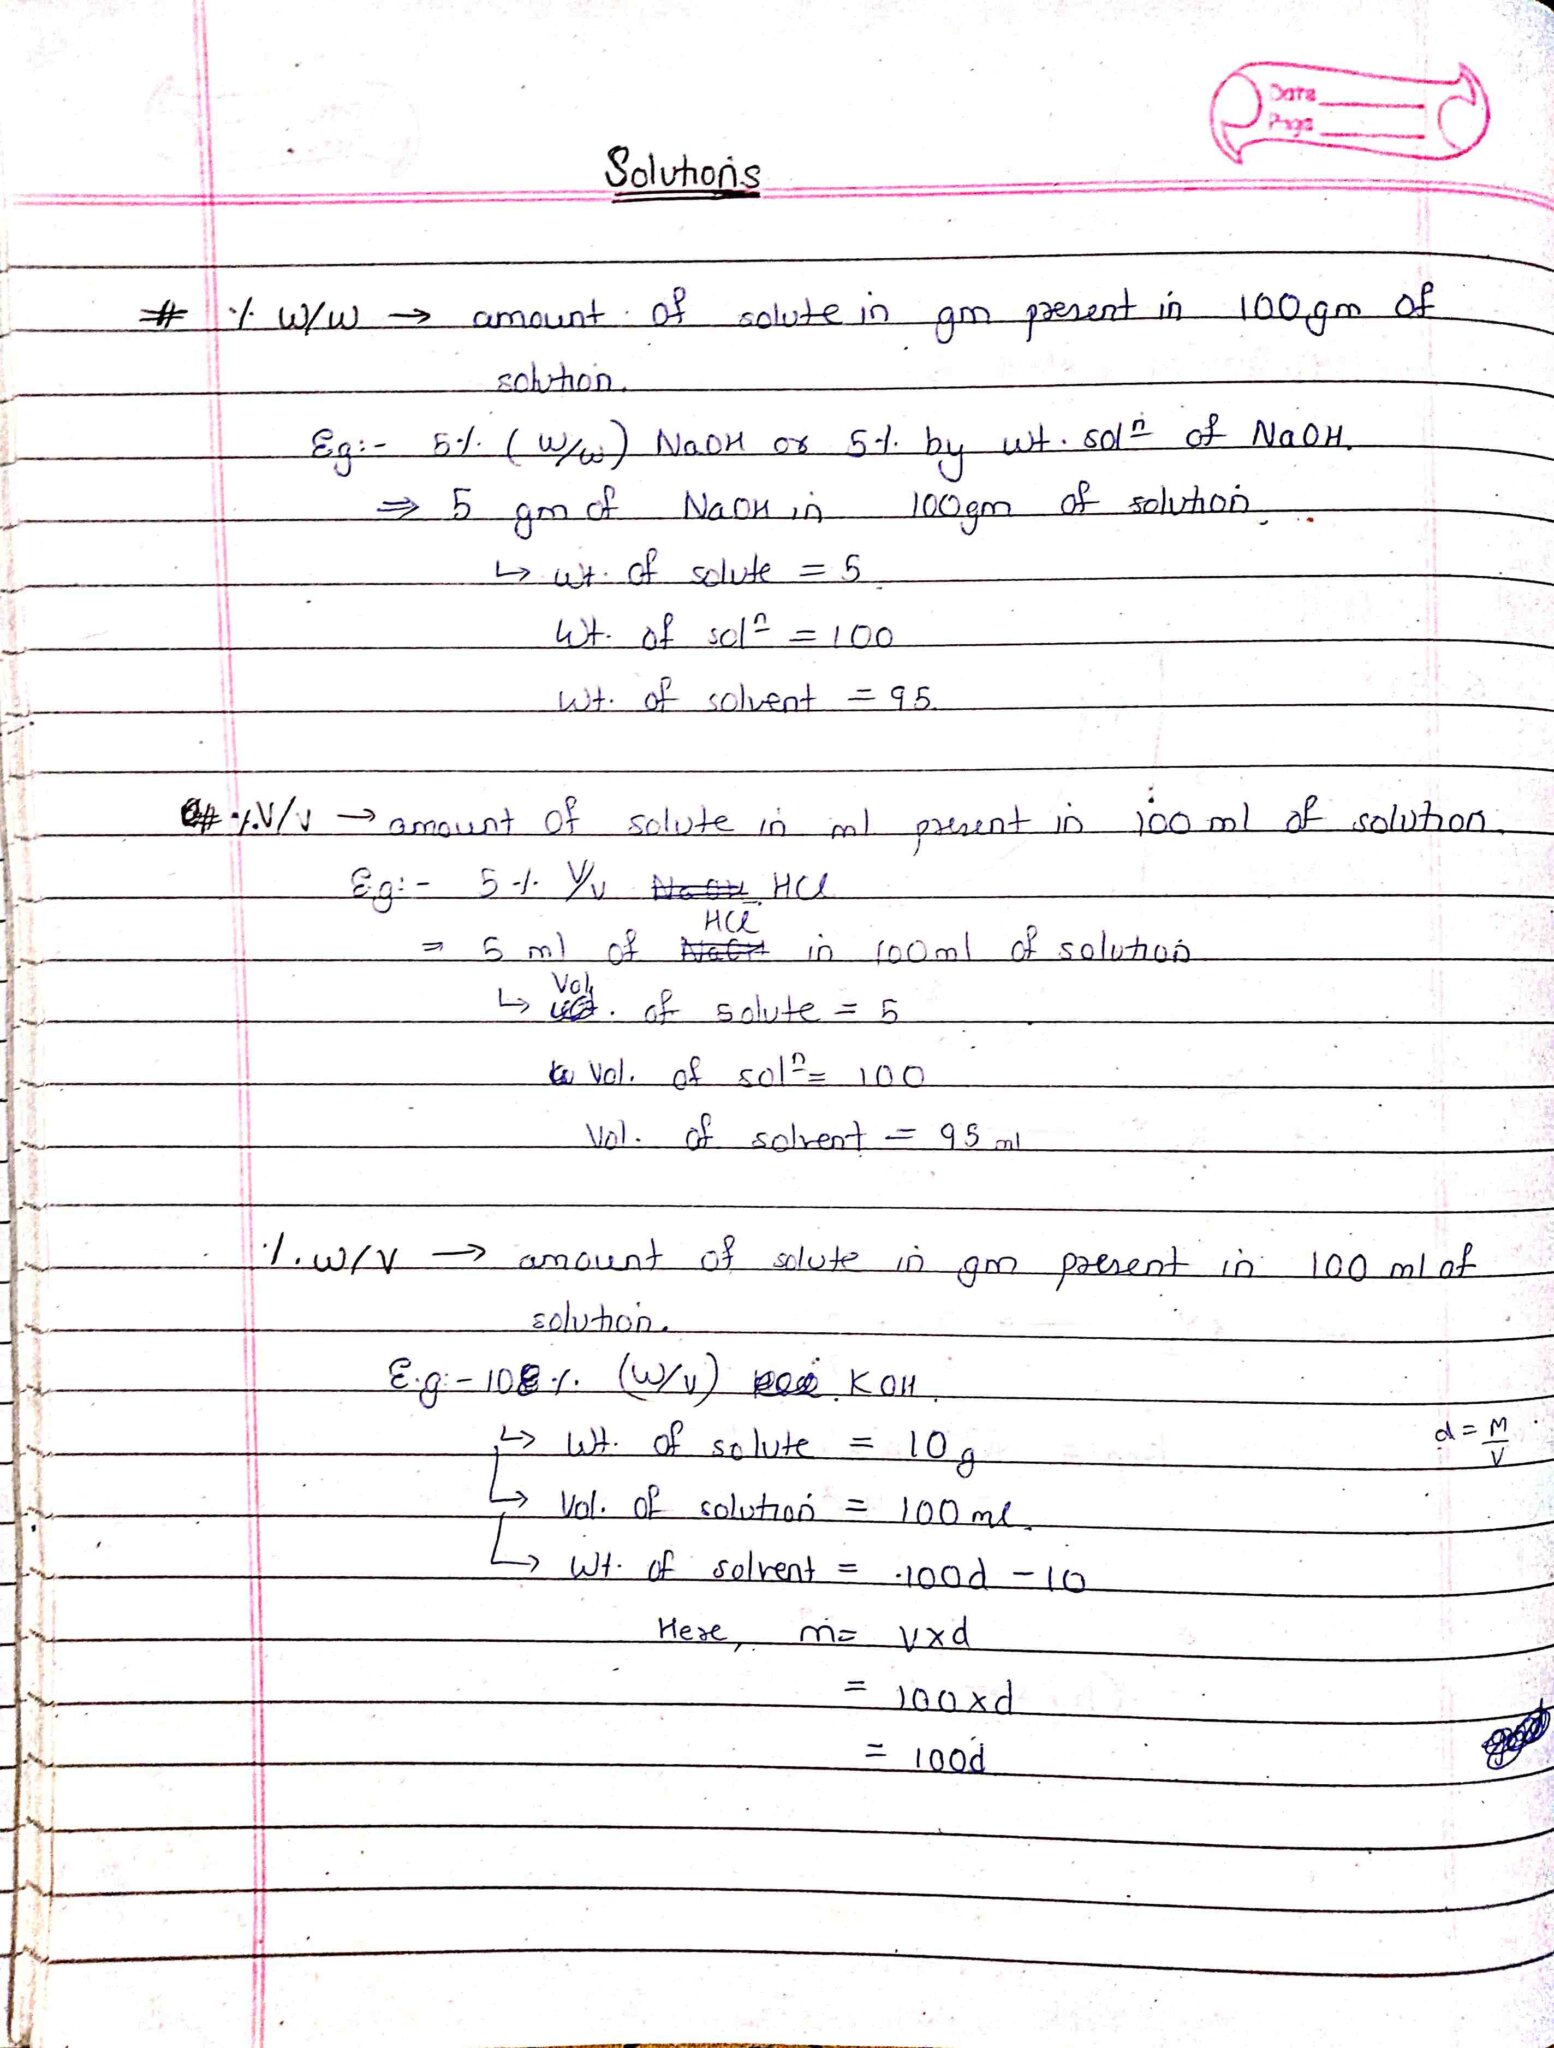 Date
Page
Solutions
# % W/W → amount of solute in gm present in 100 gm of
solution.
Eg:- 5% (W/w) NaOH or 5% by wt. solⁿ of NaOH.
⇒ 5 gm of NaOH in 100gm of solution
↳ wt. of solute = 5
Wt. of solⁿ = 100
Wt. of solvent = 95
# %.V/V → amount of solute in ml present in 100 ml of solution.
Eg:- 5% V/v NaOH HCl
HCl
= 5 ml of NaOH in 100ml of solution
Vol
↳ . of solute = 5
Vol. of solⁿ = 100
Vol. of solvent = 95 ml
%. W/V → amount of solute in gm present in 100 ml of
solution.
E.g:- 10% (W/V) KOH
↳ Wt. of solute = 10g
d = M/V
↳ Vol. of solution = 100 ml.
↳ Wt. of solvent = 100d - 10
Here, m = V×d
= 100×d
= 100d